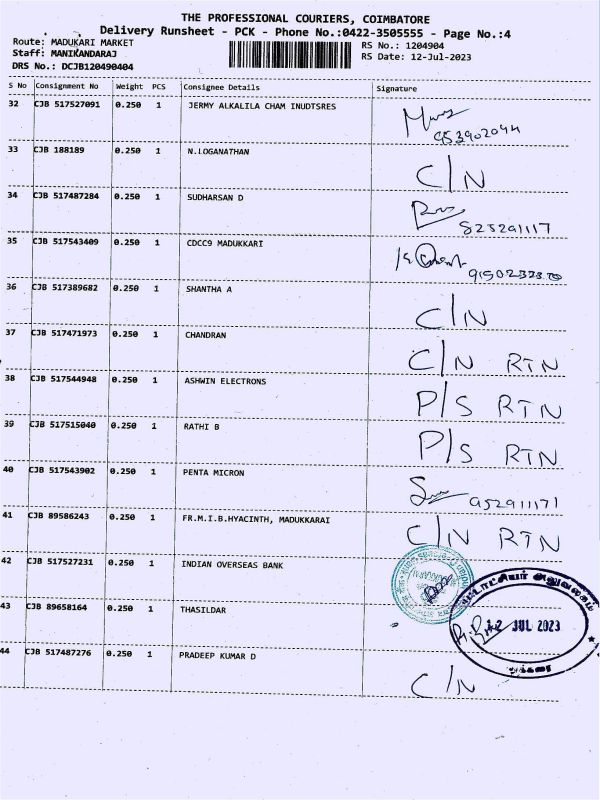 THE PROFESSIONAL COURIERS, COIMBATORE
Delivery Runsheet - PCK - Phone No.:0422-3505555 - Page No.:4
Route: MADUKARI MARKET
Staff: MANIKANDARAJ
DRS No.: DCJB120490404
RS No.: 1204904
RS Date: 12-Jul-2023
S No Consignment No Weight PCS Consignee Details Signature
32 CJB 517527091 0.250 1 JERMY ALKALILA CHAM INUDTSRES
33 CJB 188189 0.250 1 N.LOGANATHAN C/N
34 CJB 517487284 0.250 1 SUDHARSAN D
35 CJB 517543409 0.250 1 CDCC9 MADUKKARI
36 CJB 517389682 0.250 1 SHANTHA A C/N
37 CJB 517471973 0.250 1 CHANDRAN C/N RTN
38 CJB 517544948 0.250 1 ASHWIN ELECTRONS P/S RTN
39 CJB 517515040 0.250 1 RATHI B P/S RTN
40 CJB 517543902 0.250 1 PENTA MICRON 952911171
41 CJB 89586243 0.250 1 FR.M.I.B.HYACINTH, MADUKKARAI C/N RTN
42 CJB 517527231 0.250 1 INDIAN OVERSEAS BANK
43 CJB 89658164 0.250 1 THASILDAR
12 JUL 2023
44 CJB 517487276 0.250 1 PRADEEP KUMAR D C/N